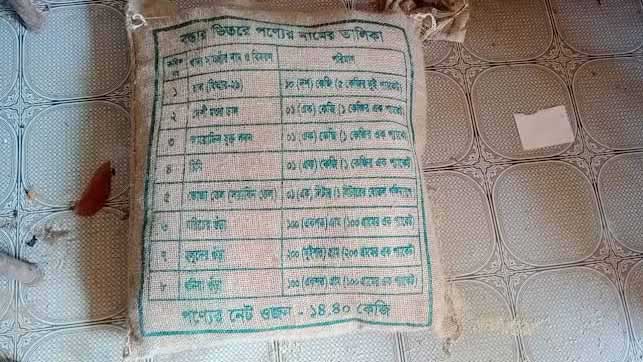 বস্তার ভিতরে পণ্যের নামের তালিকা
ক্রমিক নং খাদ্য সামগ্রীর নাম ও বিবরণ পরিমাণ
১ চাল (মিনিকেট-২৮) ১০ (দশ) কেজি (৫ কেজির দুই প্যাকেট)
২ দেশী মসুর ডাল ০১ (এক) কেজি (১ কেজির এক প্যাকেট)
৩ আয়োডিন যুক্ত লবন ০১ (এক) কেজি (১ কেজির এক প্যাকেট)
৪ চিনি ০১ (এক) কেজি (১ কেজির এক প্যাকেট)
৫ ভোজ্য তেল (সয়াবিন তেল) ০১ (এক) লিটার (১ লিটারের বোতল
৬ মরিচের গুঁড়া ১০০ (একশত) গ্রাম (১০০ গ্রামের এক প্যাকেট)
৭ হলুদের গুঁড়া ২০০ (দুইশত) গ্রাম (২০০ গ্রামের এক প্যাকেট)
৮ ধনিয়া গুঁড়া ১০০ (একশত) গ্রাম (১০০ গ্রামের এক প্যাকেট)
পণ্যের নেট ওজন - ১৪.৪০ কেজি